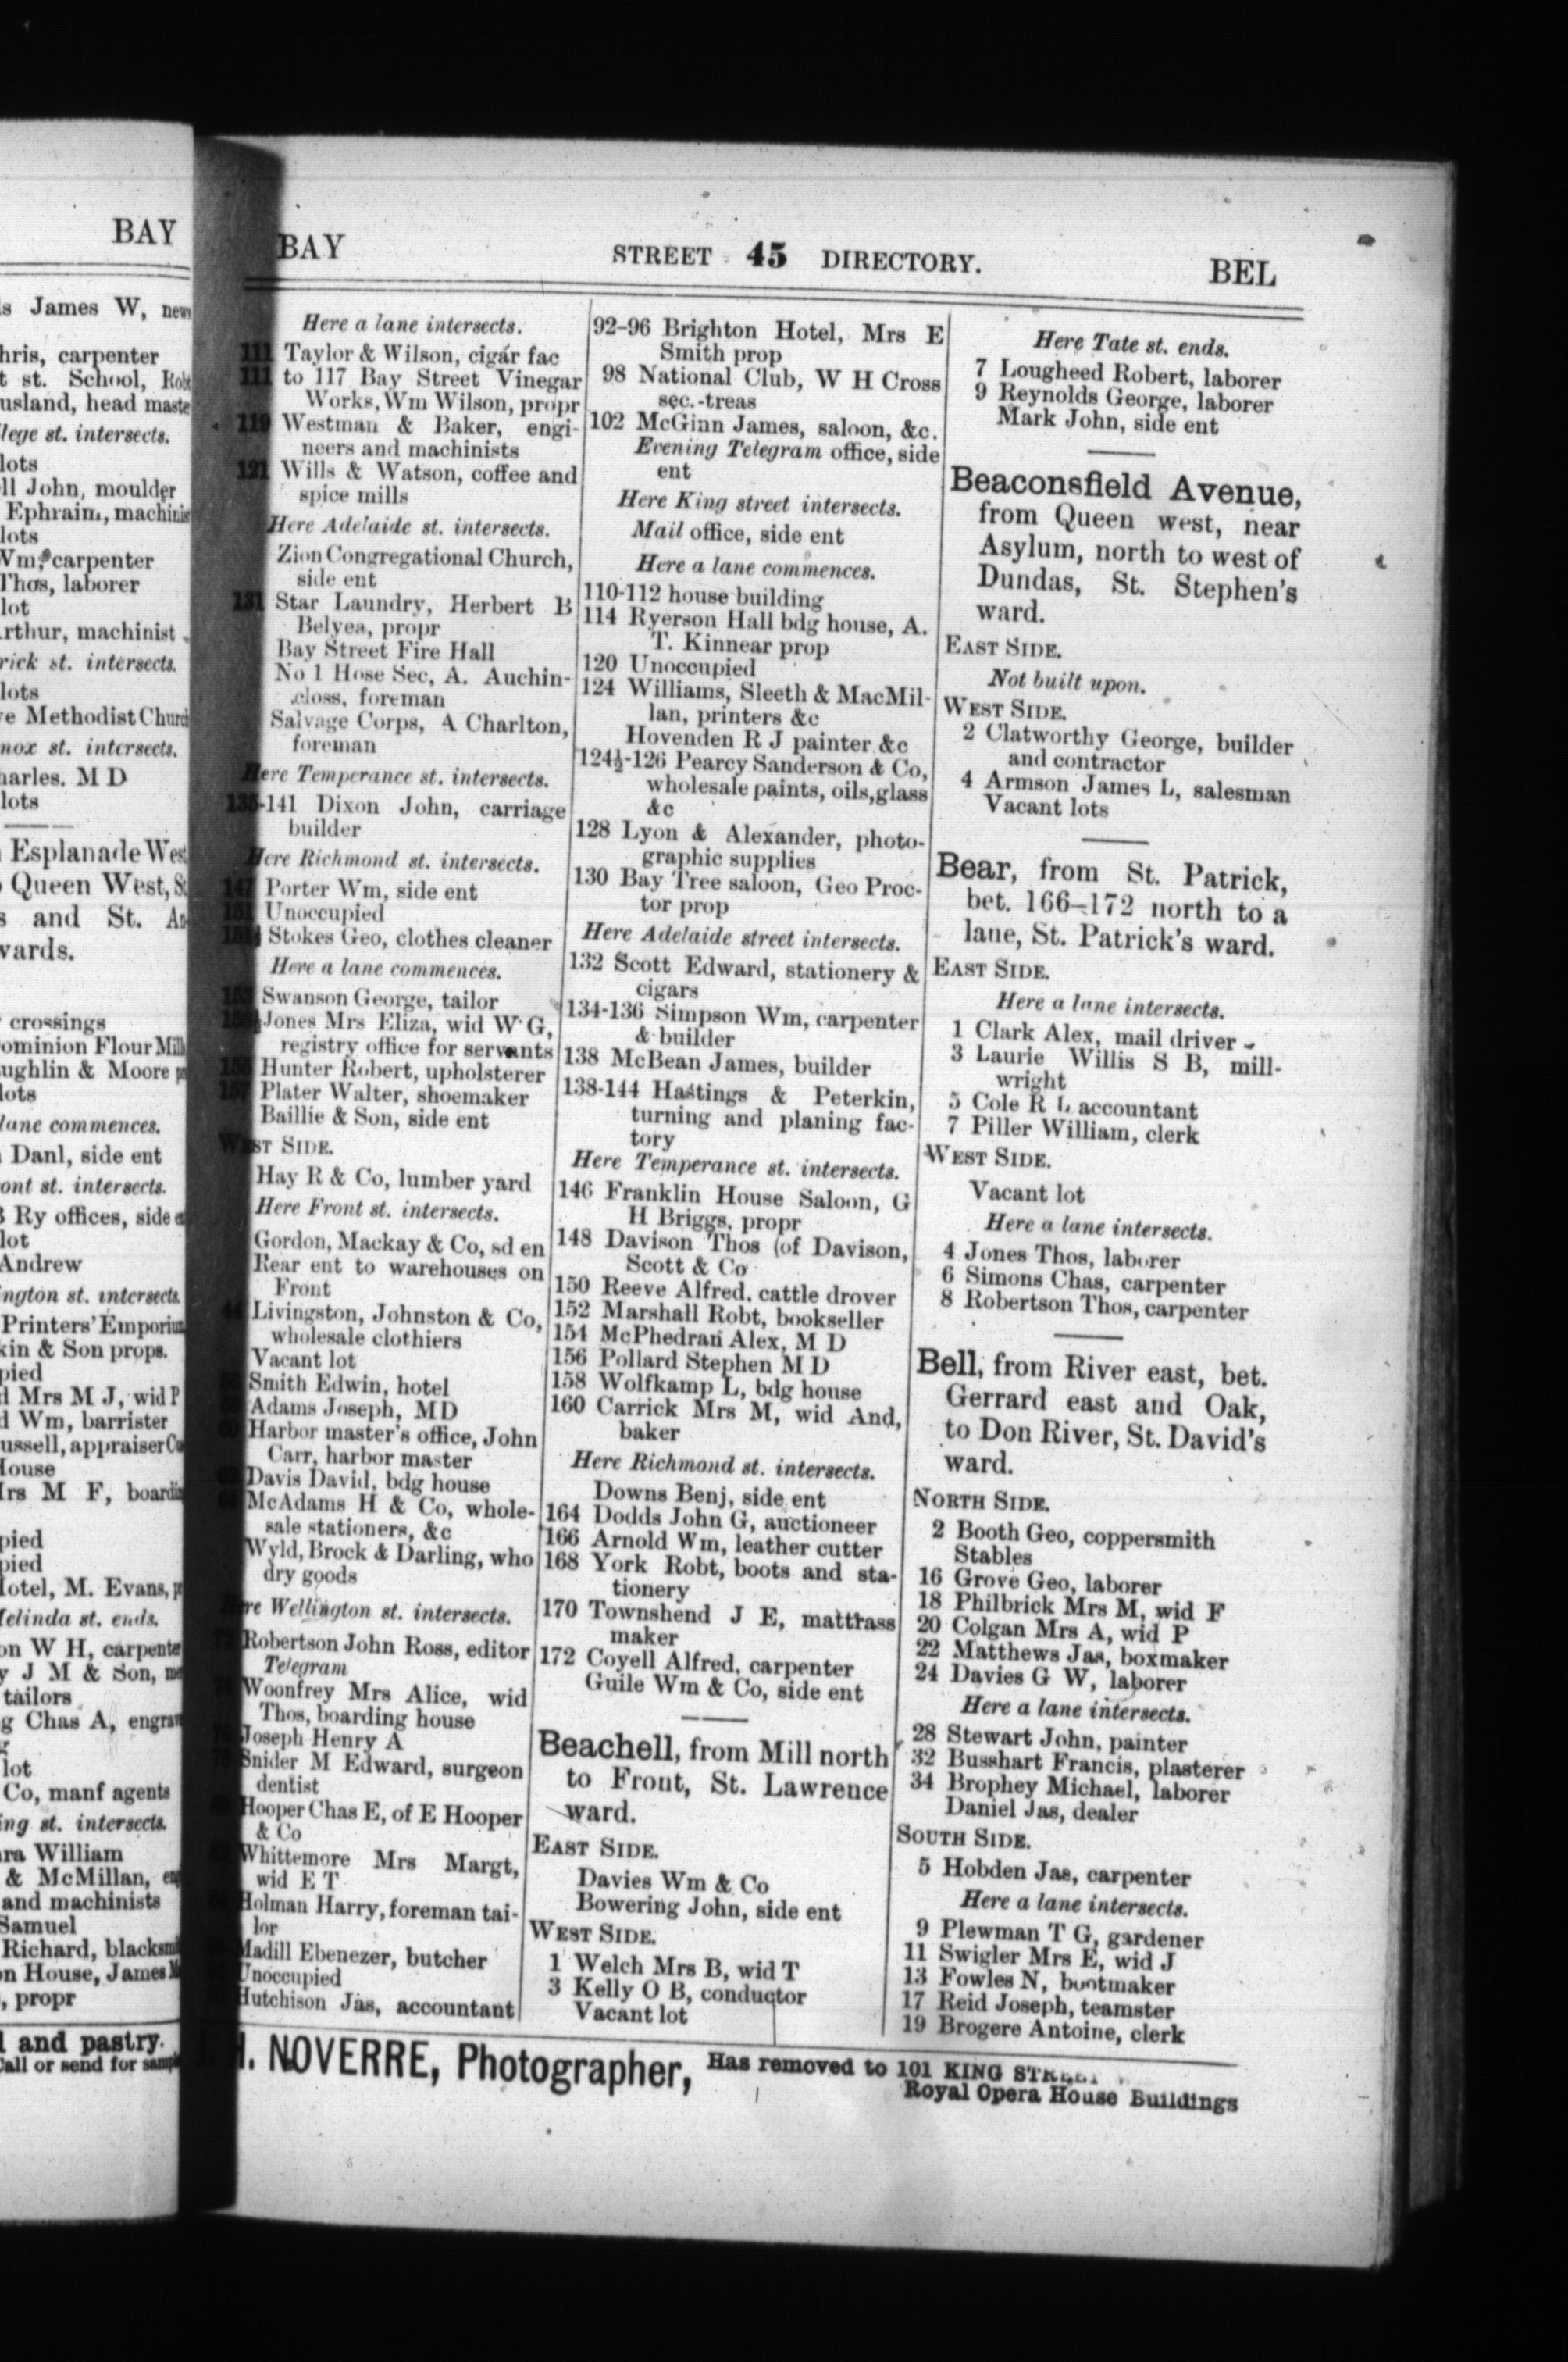 BAY
James W,
carpenter
st. School,
head
st. intersects.
lots
John, moulder
Ephraim,
lots
carpenter
Thos, laborer
lot
machinist
st. intersects.
lots
Methodist
st. intersects.
M D
lots
Esplanade
Queen West,
and St.
crossings
Flour
& Moore
lots
commences.
Danl, side ent
st. intersects.
Ry offices, side
lot
Andrew
st. intersects
Printers'
& Son props.
Mrs M J, wid P
Wm, barrister
appraiser
M F,
M. Evans,
st. ends.
W H,
J M & Son,
tailors
Chas A,
lot
Co, manf agents
st. intersects.
William
& McMillan,
and machinists
Samuel
Richard,
House, James
propr
and pastry.
or send for
BAY STREET 45 DIRECTORY. BEL
Here a lane intersects.
111 Taylor & Wilson, cigar fac
111 to 117 Bay Street Vinegar
Works, Wm Wilson, propr
119 Westman & Baker, engi-
neers and machinists
121 Wills & Watson, coffee and
spice mills
Here Adelaide st. intersects.
Zion Congregational Church,
side ent
131 Star Laundry, Herbert B
Belyea, propr
Bay Street Fire Hall
No 1 Hose Sec, A. Auchin-
closs, foreman
Salvage Corps, A Charlton,
foreman
Here Temperance st. intersects.
135-141 Dixon John, carriage
builder
Here Richmond st. intersects.
147 Porter Wm, side ent
151 Unoccupied
151½ Stokes Geo, clothes cleaner
Here a lane commences.
153 Swanson George, tailor
Jones Mrs Eliza, wid W G,
registry office for servants
155 Hunter Robert, upholsterer
157 Plater Walter, shoemaker
Baillie & Son, side ent
WEST SIDE.
Hay R & Co, lumber yard
Here Front st. intersects.
Gordon, Mackay & Co, sd en
Rear ent to warehouses on
Front
Livingston, Johnston & Co,
wholesale clothiers
Vacant lot
Smith Edwin, hotel
Adams Joseph, MD
Harbor master's office, John
Carr, harbor master
Davis David, bdg house
McAdams H & Co, whole-
sale stationers, &c
Wyld, Brock & Darling, who
dry goods
Here Wellington st. intersects.
Robertson John Ross, editor
Telegram
Woonfrey Mrs Alice, wid
Thos, boarding house
Joseph Henry A
Snider M Edward, surgeon
dentist
Hooper Chas E, of E Hooper
& Co
Whittemore Mrs Margt,
wid E T
Holman Harry, foreman tai-
lor
Madill Ebenezer, butcher
Unoccupied
Hutchison Jas, accountant
92-96 Brighton Hotel, Mrs E
Smith prop
98 National Club, W H Cross
sec.-treas
102 McGinn James, saloon, &c.
Evening Telegram office, side
ent
Here King street intersects.
Mail office, side ent
Here a lane commences.
110-112 house building
114 Ryerson Hall bdg house, A.
T. Kinnear prop
120 Unoccupied
124 Williams, Sleeth & MacMil-
lan, printers &c
Hovenden R J painter &c
124½-126 Pearcy Sanderson & Co,
wholesale paints, oils, glass
&c
128 Lyon & Alexander, photo-
graphic supplies
130 Bay Tree saloon, Geo Proc-
tor prop
Here Adelaide street intersects.
132 Scott Edward, stationery &
cigars
134-136 Simpson Wm, carpenter
& builder
138 McBean James, builder
138-144 Hastings & Peterkin,
turning and planing fac-
tory
Here Temperance st. intersects.
146 Franklin House Saloon, G
H Briggs, propr
148 Davison Thos (of Davison,
Scott & Co
150 Reeve Alfred, cattle drover
152 Marshall Robt, bookseller
154 McPhedran Alex, M D
156 Pollard Stephen M D
158 Wolfkamp L, bdg house
160 Carrick Mrs M, wid And,
baker
Here Richmond st. intersects.
Downs Benj, side ent
164 Dodds John G, auctioneer
166 Arnold Wm, leather cutter
168 York Robt, boots and sta-
tionery
170 Townshend J E, mattrass
maker
172 Coyell Alfred, carpenter
Guile Wm & Co, side ent
Beachell, from Mill north
to Front, St. Lawrence
ward.
EAST SIDE.
Davies Wm & Co
Bowering John, side ent
WEST SIDE.
1 Welch Mrs B, wid T
3 Kelly O B, conductor
Vacant lot
Here Tate st. ends.
7 Lougheed Robert, laborer
9 Reynolds George, laborer
Mark John, side ent
Beaconsfield Avenue,
from Queen west, near
Asylum, north to west of
Dundas, St. Stephen's
ward.
EAST SIDE.
Not built upon.
WEST SIDE.
2 Clatworthy George, builder
and contractor
4 Armson James L, salesman
Vacant lots
Bear, from St. Patrick,
bet. 166-172 north to a
lane, St. Patrick's ward.
EAST SIDE.
Here a lane intersects.
1 Clark Alex, mail driver
3 Laurie Willis S B, mill-
wright
5 Cole R L accountant
7 Piller William, clerk
WEST SIDE.
Vacant lot
Here a lane intersects.
4 Jones Thos, laborer
6 Simons Chas, carpenter
8 Robertson Thos, carpenter
Bell, from River east, bet.
Gerrard east and Oak,
to Don River, St. David's
ward.
NORTH SIDE.
2 Booth Geo, coppersmith
Stables
16 Grove Geo, laborer
18 Philbrick Mrs M, wid F
20 Colgan Mrs A, wid P
22 Matthews Jas, boxmaker
24 Davies G W, laborer
Here a lane intersects.
28 Stewart John, painter
32 Busshart Francis, plasterer
34 Brophey Michael, laborer
Daniel Jas, dealer
SOUTH SIDE.
5 Hobden Jas, carpenter
Here a lane intersects.
9 Plewman T G, gardener
11 Swigler Mrs E, wid J
13 Fowles N, bootmaker
17 Reid Joseph, teamster
19 Brogere Antoine, clerk
J. H. NOVERRE, Photographer, Has removed to 101 KING
Royal Opera House Buildings